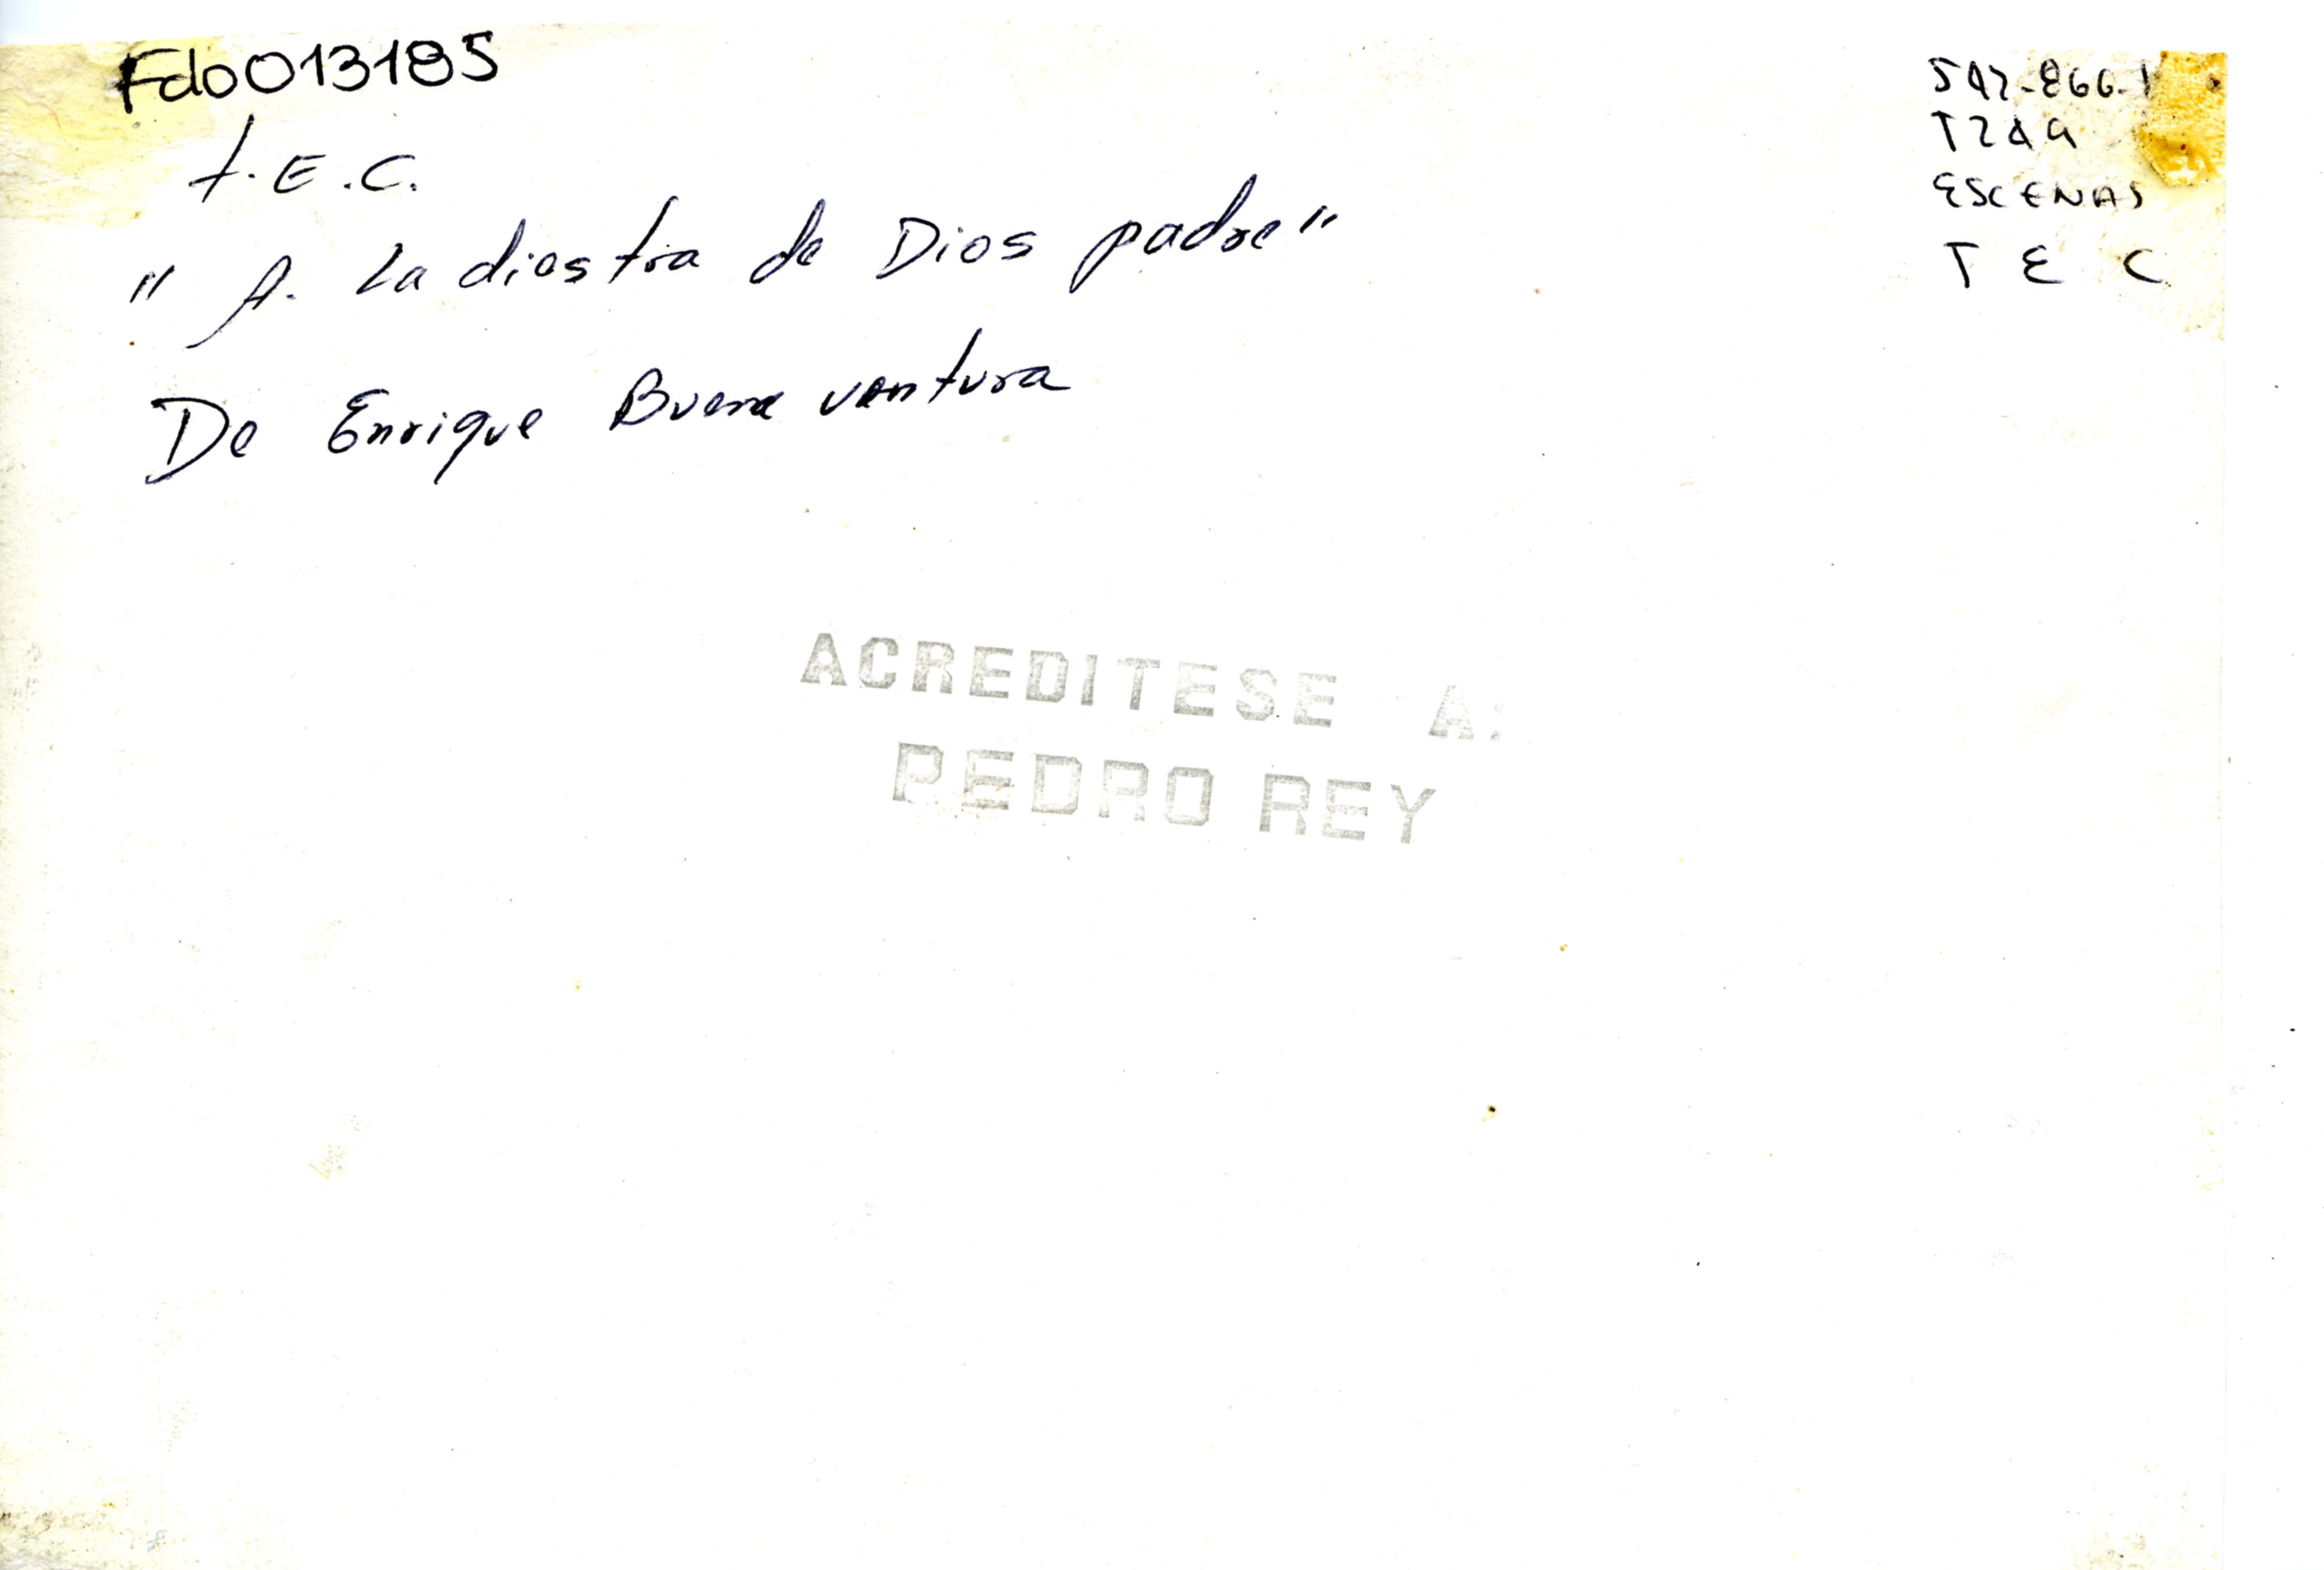 Fdb013185
T.E.C.
"A. La diestra de Dios padre"
De Enrique Buenaventura
ESCENAS
T E C
ACREDITESE A:
PEDRO REY